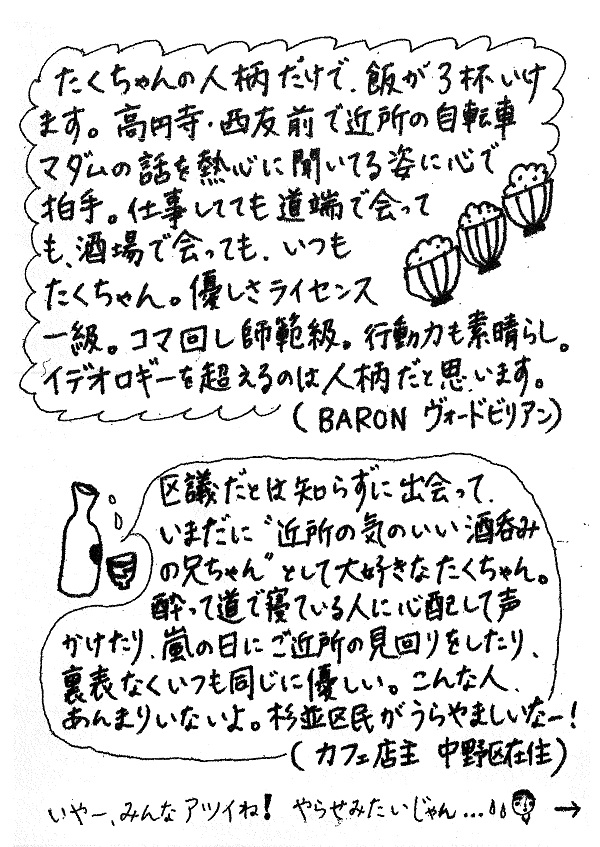 たくちゃんの人柄だけで、飯が3杯いけ
ます。高円寺・西友前で近所の自転車
マダムの話を熱心に聞いてる姿に心で
拍手。仕事してても道端で会って
も、酒場で会っても、いつも
たくちゃん。優しさライセンス
一級。コマ回し師範級。行動力も素晴らし。
イデオロギーを超えるのは人柄だと思います。
(BARON ヴォードビリアン)
区議だとは知らずに出会って、
いまだに“近所の気のいい酒呑み
の兄ちゃん”として大好きなたくちゃん。
酔って道で寝ている人に心配して声
かけたり、嵐の日にご近所の見回りをしたり、
裏表なくいつも同じに優しい。こんな人、
あんまりいないよ。杉並区民がうらやましいなー!
(カフェ店主 中野区在住)
いやー、みんなアツイね! やらせみたいじゃん… →